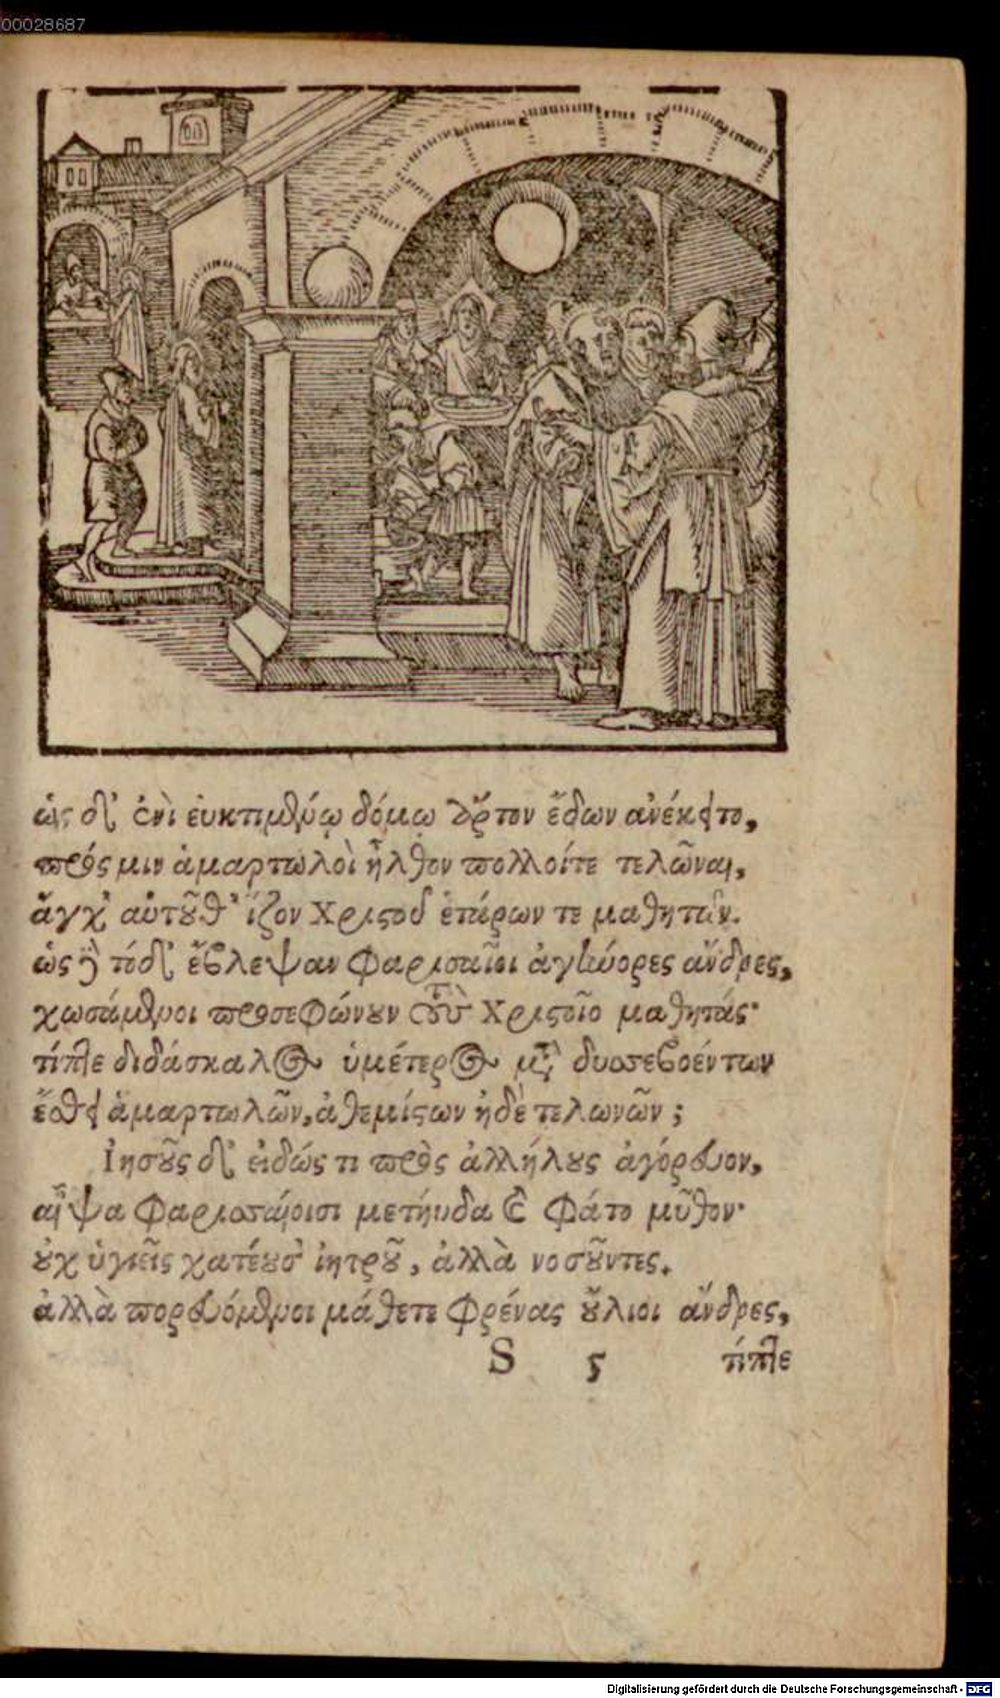 00028687
ὡς δ' ἐνὶ ἐυκτιμθύῳ δόμῳ ἄρτον ἔδων ἀνέκειτο,
πρός μιν ἁμαρτωλοὶ ἦλθον πολλοίτε τελῶναι,
ἄγχ' αὐτοῦθ' ἵζον Χριστοῦ ἑτάρων τε μαθητῶν.
ὡς γὰρ τόδ' ἔβλεψαν Φαρισαῖοι ἀγήνορες ἄνδρες,
χωσάμενοι προσεφώνουν τοὺ Χριστοῖο μαθητάς·
τίπτε διδάσκαλος ὑμέτερος μετὰ δυσσεβοέντων
ἔσθει ἁμαρτωλῶν, ἀθεμίστων ἠδὲ τελωνῶν;
Ἰησοῦς δ' εἰδώς τι πρὸς ἀλλήλους ἀγόρευον,
αἶψα Φαρισαίοισι μετηύδα καὶ φάτο μῦθον·
οὐχ ὑγιεῖς χατέουσ' ἰητροῦ, ἀλλὰ νοσοῦντες.
ἀλλὰ πορευόμενοι μάθετε φρένας οὔλιοι ἄνδρες,
S 5 τίπτε
Digitalisierung gefördert durch die Deutsche Forschungsgemeinschaft - DFG